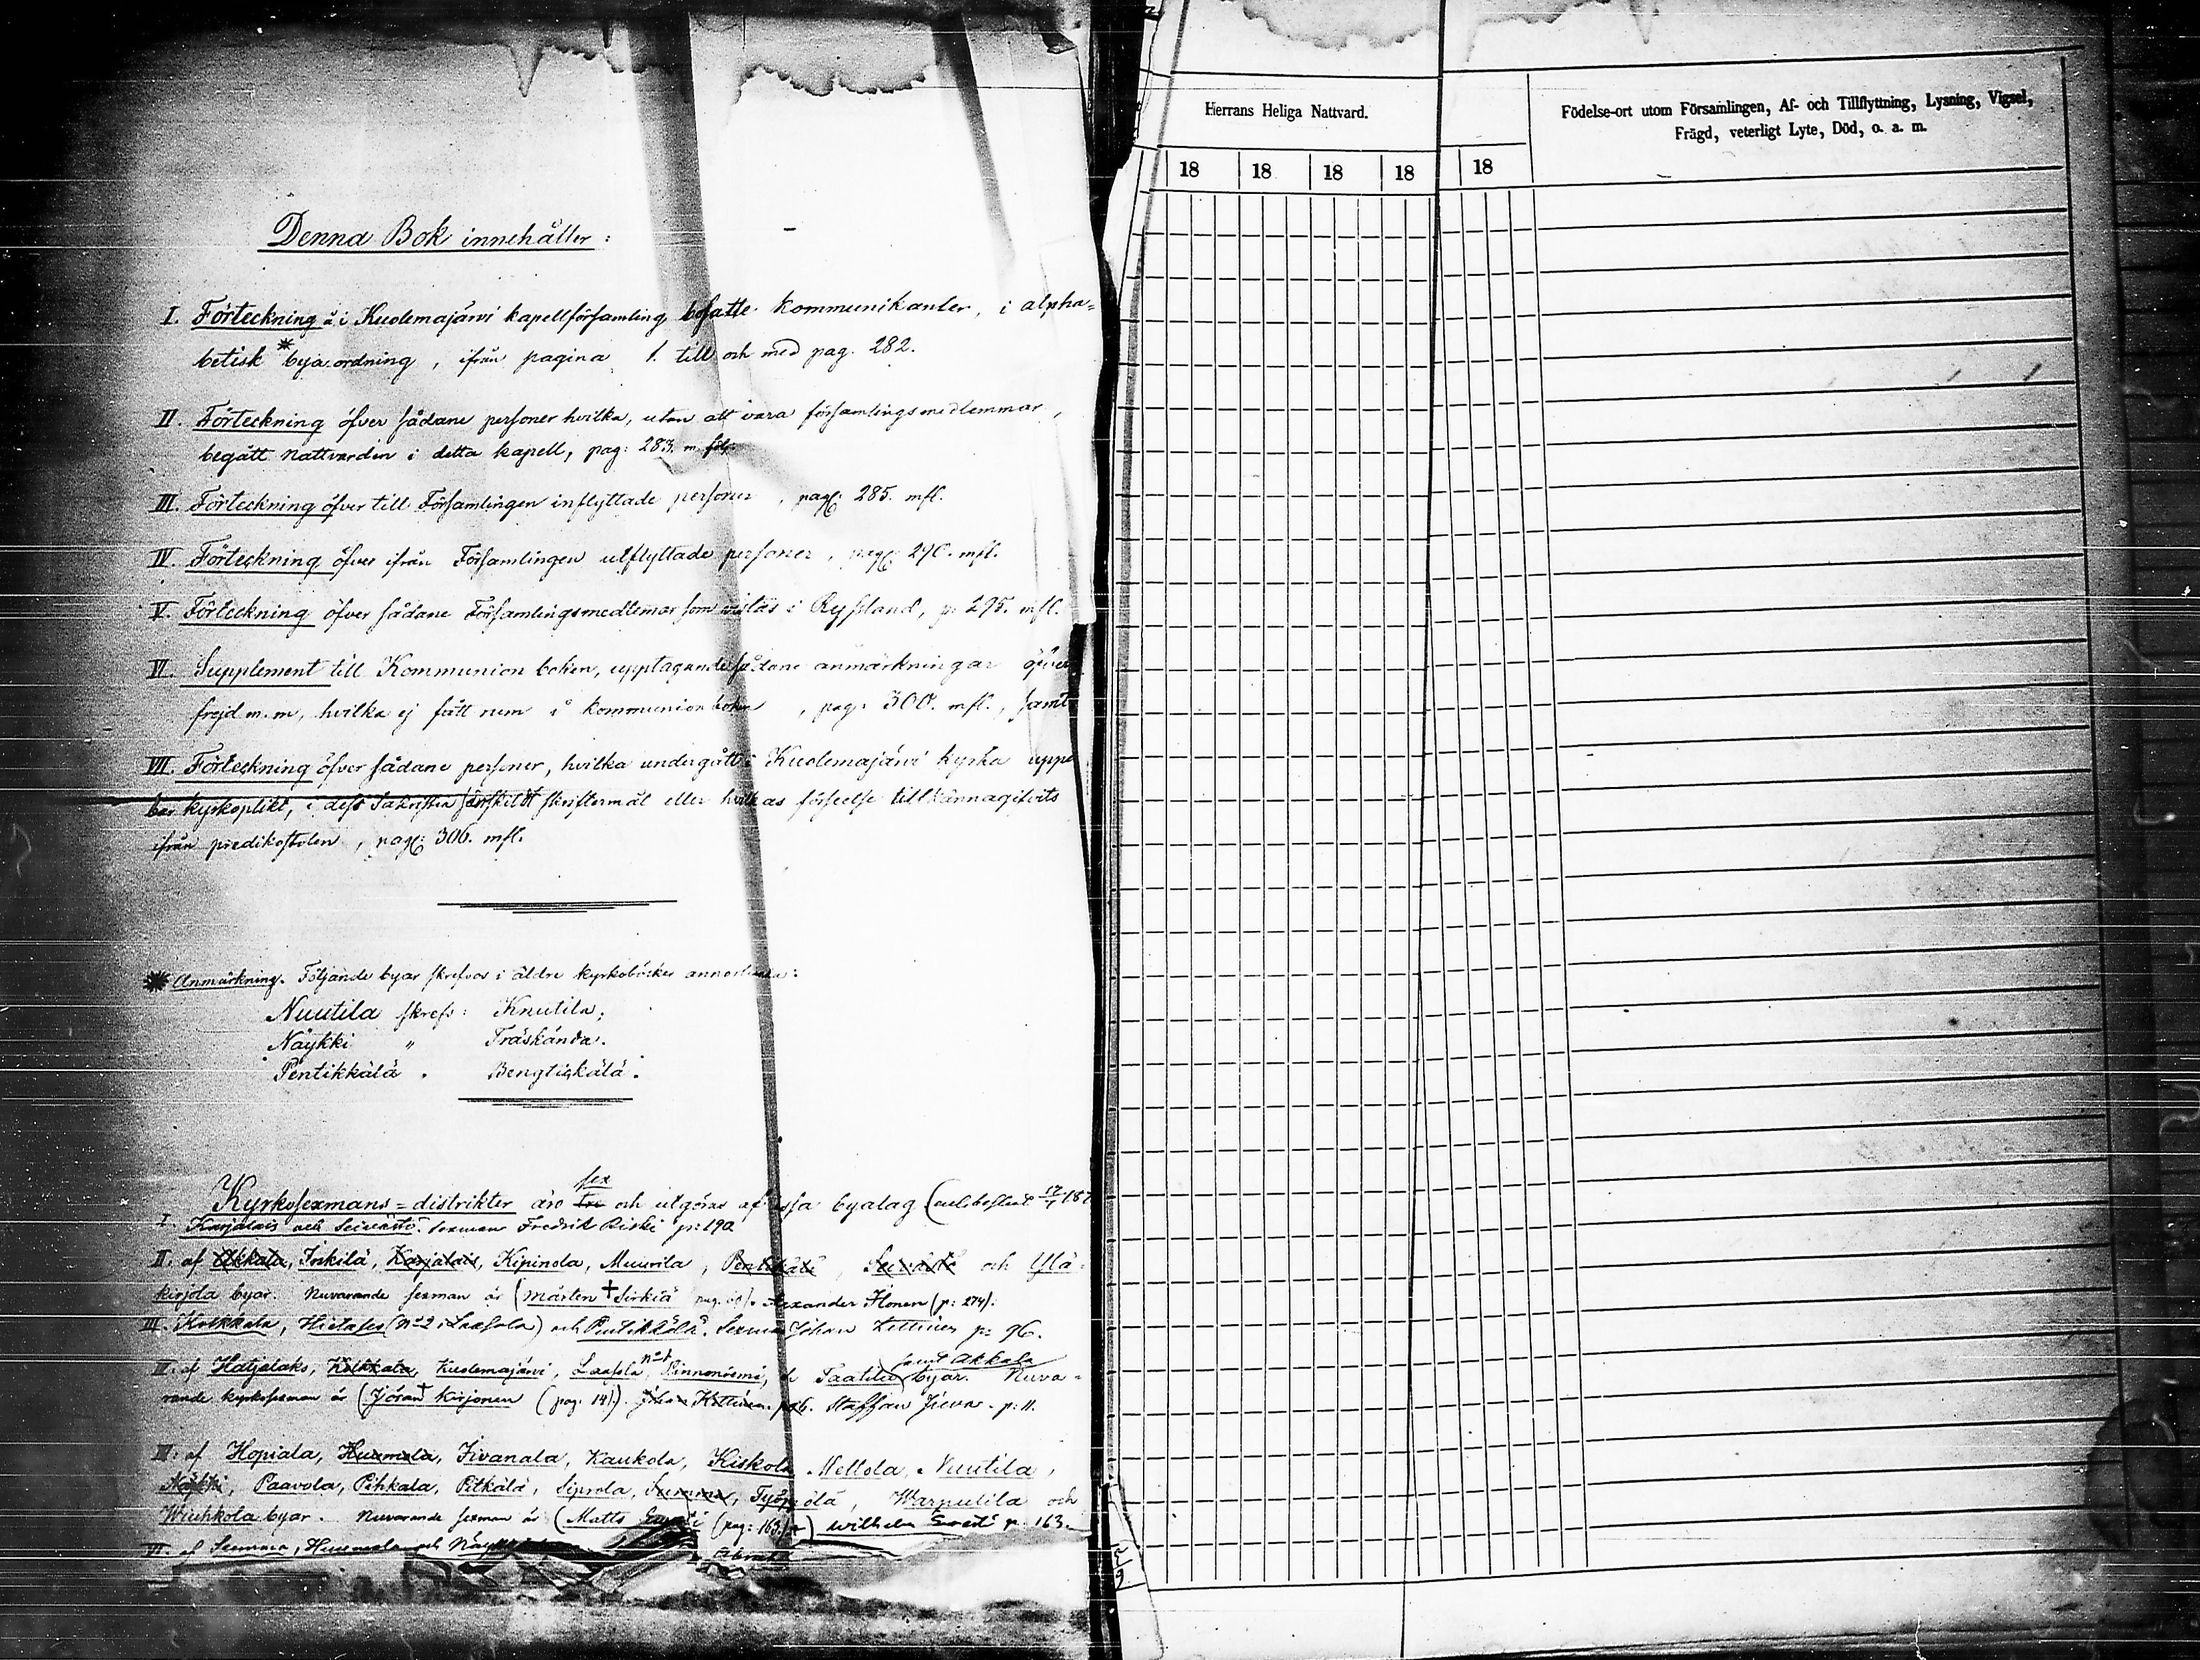 Denna Bok innehåller:
I. Förteckning å i Kuolemajärvi kapellförsamling bosatte kommunikanter, i alpha=
betisk * bya ordning, ifrån pagina 1. till och med pag. 282.
II. Förteckning öfver sådane personer hvilka, utan att vara församlingsmedlemmar,
begått nattvarden i detta kapell, pag: 283. m. följ.
III. Förteckning öfver till Församlingen inflyttade personer, pag: 285. mfl.
IV. Förteckning öfver ifrån Församlingen utflyttade personer, pag: 290. mfl.
V. Förteckning öfver sådane Församlingsmedlemar som vistas i Ryssland, p: 295. mfl.
VI. Supplement till Kommunion boken, upptagande sådane anmärkningar öfver
frejd m.m, hvilka ej fått rum i kommunion boken, pag: 300. mfl., samt
VII. Förteckning öfver sådane personer, hvilka undergått i Kuolemajärvi kyrka uppen
bar kyrkoplikt, i dess Sakristia särskildt skriftermål eller hvilkas förseelse tillkännagifvits
ifrån predikostolen, pag: 306. mfl.
* Anmärkning. Följande byar skrefvos i äldre kyrkoböcker annorlunda:
Nuutila skrefs: Knutila;
Näykki " Träskända.
Pentikkälä . Bengtiskälä.
sex
Kyrkosexmans=distrikter äro tre och utgöras af dessa byalag (enl. beslut 17/7 187
I. Karjalais och Seivästö. Sexman Fredrik Riski p: 190
II. af Akkala, Inkilä, Karjalais, Kipinola, Muurila, Pentikkälä, Seivästö och Ylä=
kirjola byar. Nuvarande sexman är (Mårten + Sirkiä pag. ). Alexander Ilonen (p: 274).
III. Kolkkala, Hietases (No 2 i Laasola) och Pentikkälä. Sexman Johan Kettinen p: 96.
No 1 samt Akkala
af Hatjalaks, Kolkkala, Kuolemajärvi, Laasola, Pinnoniemi, Taatila byar. Nuva=
rande kyrkosexman är (Jöran + Kirjonen (pag: 141). Johan Kettinen p. 96. Staffan p: 11.
af Hopiala, Huumola, Iivanala, Kaukola, Kiskola, Mellola, Nuutila,
Näykki, Paavola, Pihkala, Pitkälä, Siprola, Summa, Työppölä, Warpulila och
Wiuhkola byar. Nuvarande sexman är (Matts (pag: 163.) Wilhelm p. 163.
VI. af Summa, Huumola och Näykki
Herrans Heliga Nattvard.
Födelse-ort utom Församlingen, Af- och Tillflyttning, Lysning, Vigsel,
Frägd, veterligt Lyte, Död, o. a. m.
18 18 18 18 18